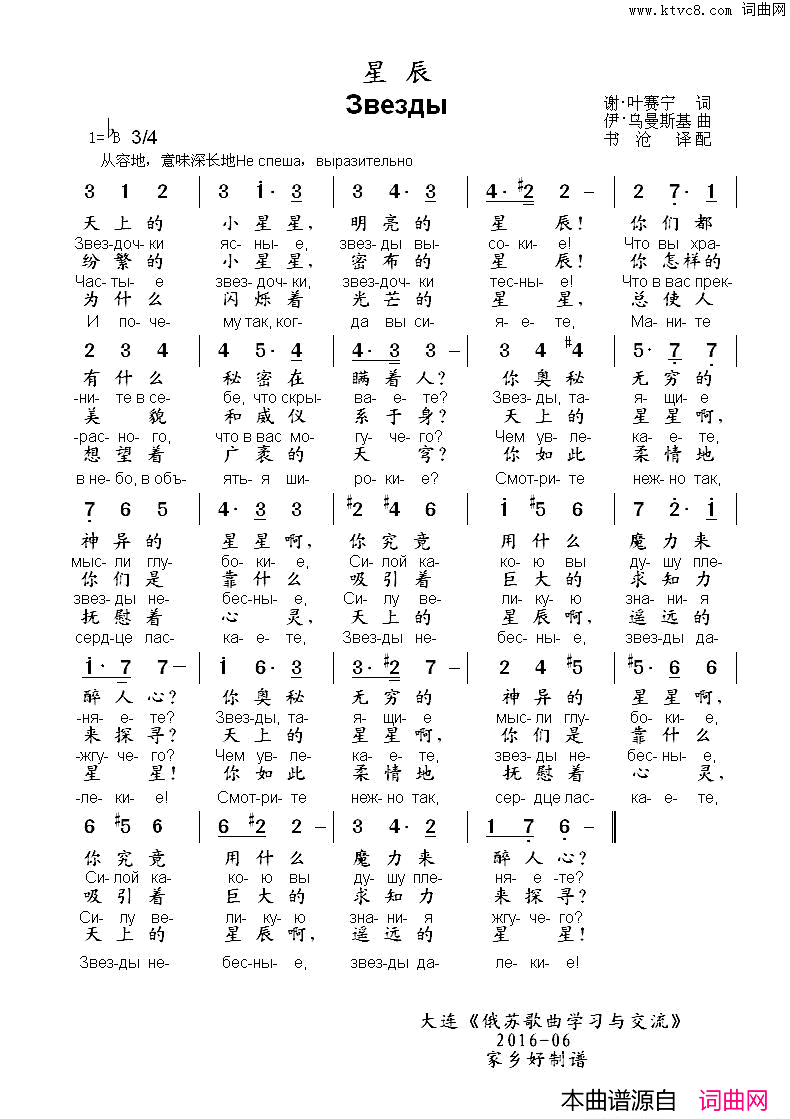 www.ktvc8.com 词曲网
星 辰
Звезды
谢·叶赛宁 词
1=♭B 3/4
伊·乌曼斯基 曲
书 沧 译配
从容地，意味深长地Не спеша，выразительно
3 1 2 | 3 i· 3 | 3 4· 3 | 4· #2 2 – | 2 7· 1 |
天上的 小星星， 明亮的 星 辰！ 你们都
Звез-доч-ки яс-ны-е, звез-ды вы- со-ки-е! Что вы хра-
纷繁的 小星星， 密布的 星 辰！ 你怎样的
Час-ты-е звез-доч-ки, звез-доч-ки тес-ны-е! Что в вас прек-
为什么 闪烁着 光芒的 星 星， 总使人
И по-че- му так, ког- да вы си- я-е-те, Ма-ни-те
2 3 4 | 4 5· 4 | 4· 3 3 – | 3 4 #4 | 5· 7 7 |
有什么 秘密在 瞒着人？ 你奥秘 无穷的
-ни-те в се- бе, что скры- ва-е-те? Звез-ды, та- я-щи-е
美 貌 和威仪 系于身？ 天上的 星星啊，
-рас-но-го, что в вас мо- гу-че-го? Чем ув-ле- ка-е-те,
想望着 广袤的 天 穹？ 你如此 柔情地
в не-бо, в объ- ять-я ши- ро-ки-е? Смот-ри-те неж-но так,
7 6 5 | 4· 3 3 | #2 #4 6 | i #5 6 | 7 2· i |
神异的 星星啊， 你究竟 用什么 魔力来
мыс-ли глу- бо-ки-е, Си-лой ка- ко-ю вы ду-шу пле-
你们是 靠什么 吸引着 巨大的 求知力
звез-ды не- бес-ны-е, Си-лу ве- ли-ку-ю зна-ни-я
抚慰着 心 灵， 天上的 星辰啊， 遥远的
серд-це лас- ка-е-те, Звез-ды не- бес-ны-е, звез-ды да-
i· 7 7 – | i 6· 3 | 3· #2 7 – | 2 4 #5 | 5· 6 6 |
醉人心？ 你奥秘 无穷的 神异的 星星啊，
-ня-е-те? Звез-ды, та- я-щи-е мыс-ли глу- бо-ки-е,
来探寻？ 天上的 星星啊， 你们是 靠什么
-жгу-че-го? Чем ув-ле- ка-е-те, звез-ды не- бес-ны-е,
星 星！ 你如此 柔情地 抚慰着 心 灵，
-ле-ки-е! Смот-ри-те неж-но так, сер-дце лас- ка-е-те,
6 #5 6 | 6 #2 2 – | 3 4· 2 | 1 7 6 – ‖
你究竟 用什么 魔力来 醉人心？
Си-лой ка- ко-ю вы ду-шу пле- ня-е-те?
吸引着 巨大的 求知力 来探寻？
Си-лу ве- ли-ку-ю зна-ни-я жгу-че-го?
天上的 星辰啊， 遥远的 星 星！
Звез-ды не- бес-ны-е, звез-ды да- ле-ки-е!
大连《俄苏歌曲学习与交流》
2016-06
家乡好制谱
本曲谱源自 词曲网